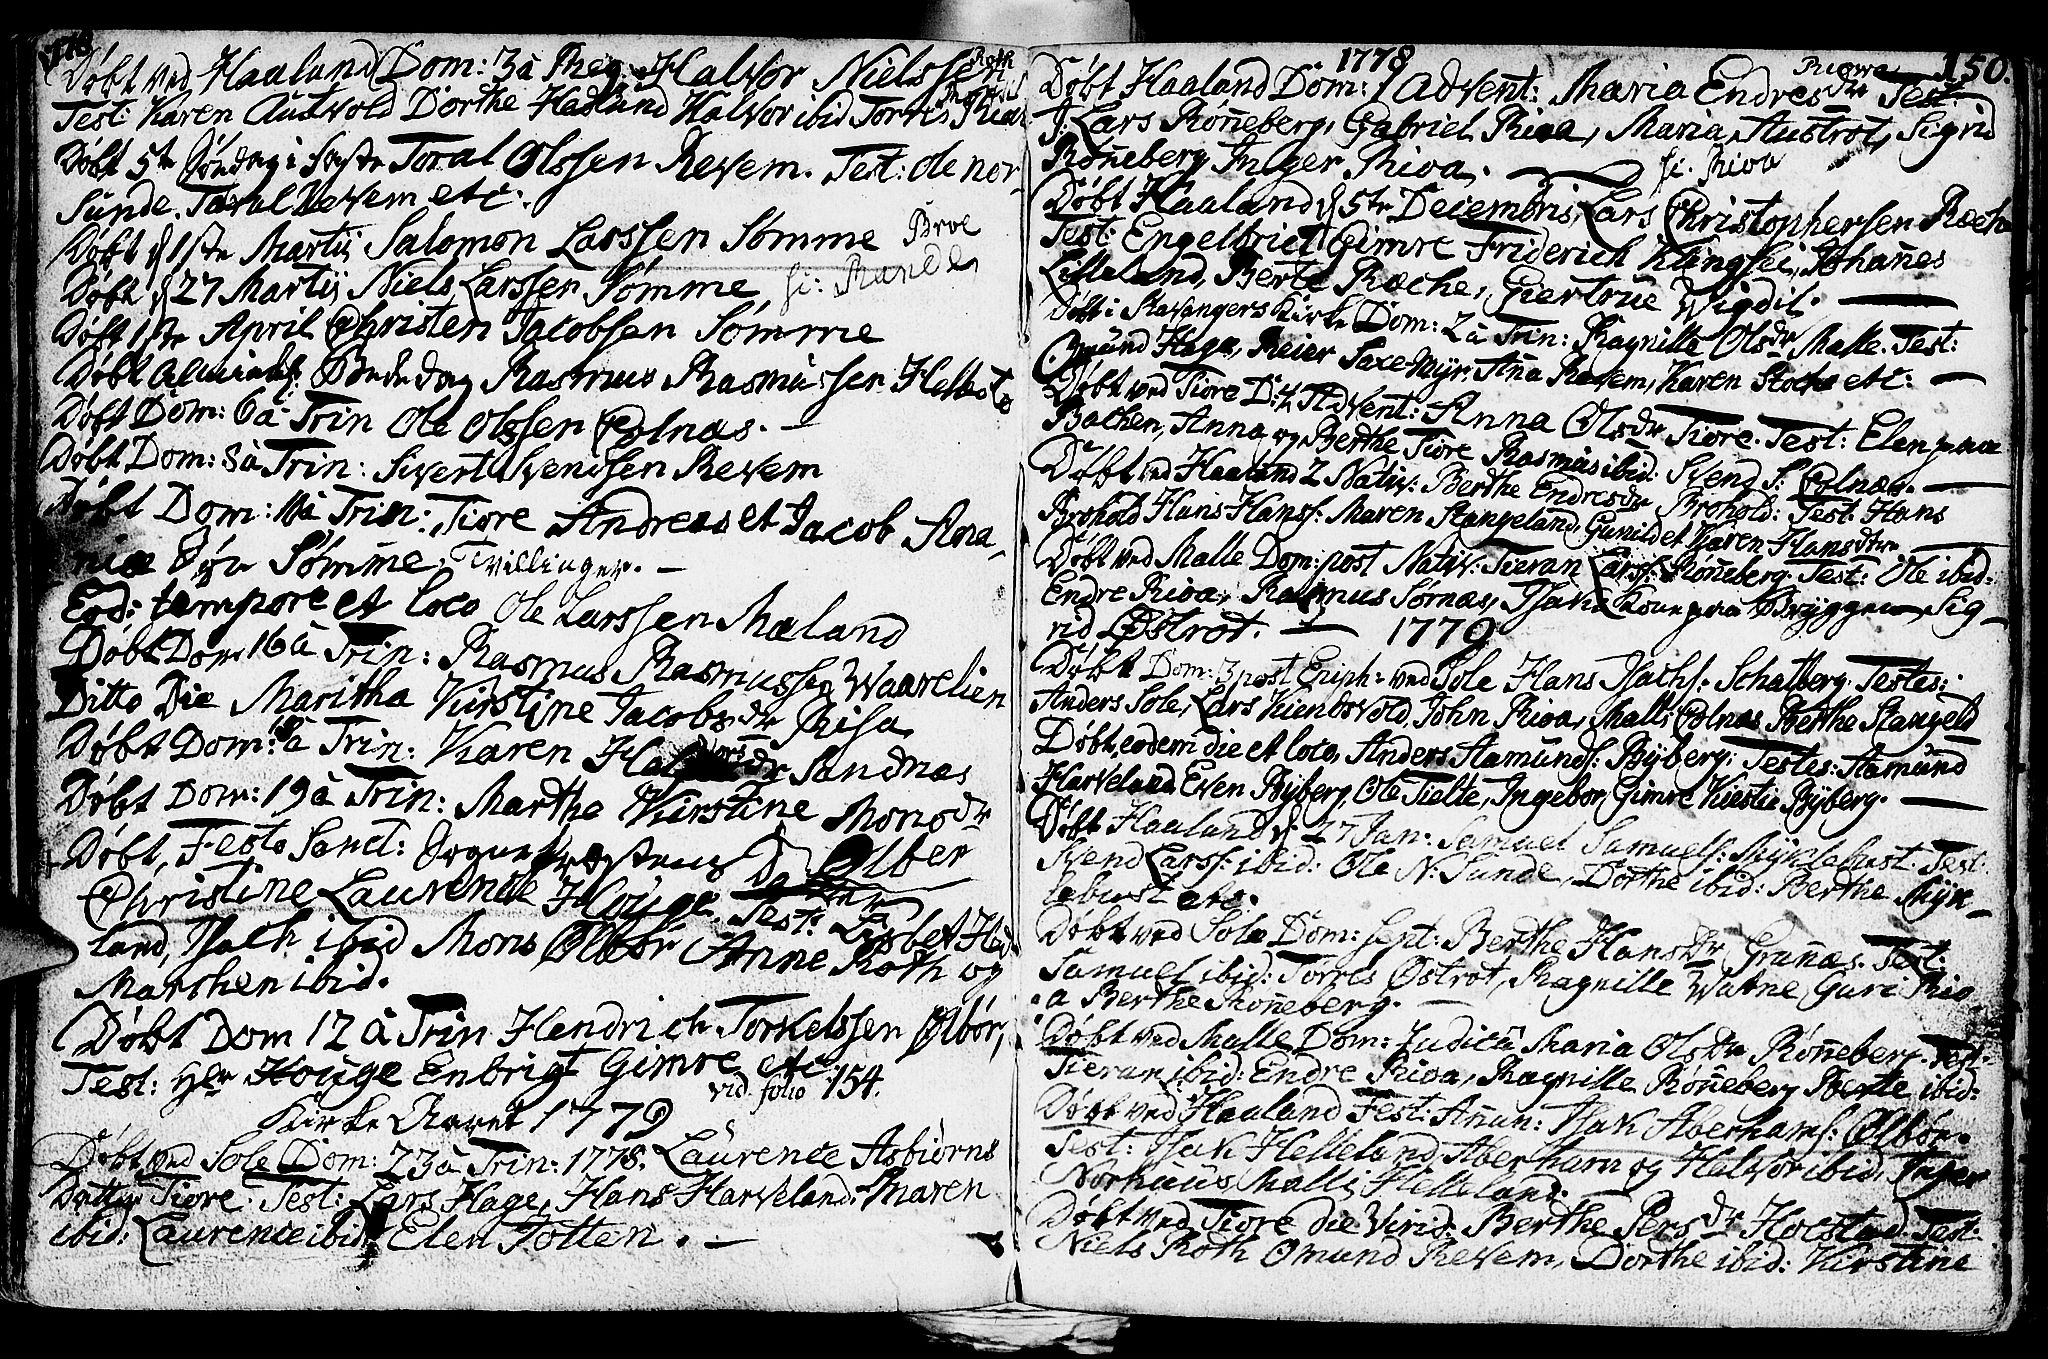 1778
Døbt ved Haaland Dom: 3 à Reg. Halvor Nielssen Roth
Test: Karen Austvold Dorthe Haaland Halvor ibid Torres
Døbt 5te Søndag i Faste Toral Olssen Revem. Test: Ole nor
Sunde. Toral Revem etc.
Døbt d 1ste Martij Salomon Larssen Sømme Broe
Døbt d 27 Martij Niels Larssen Sømme
Døbt 1ste April Christen Jacobsen Sømme
Døbt Bededag Rasmus Rasmussen
Døbt Dom: 6 à Trin Ole Olssen Golnæs. —
Døbt Dom: 8 à Trin: Sivert Svendsen Revem
Døbt Dom: 11 à Trin: Tiore Andreas et Jacob Ana-
niæ Søn Sømme, Tvillinger. —
Eod: tempore et loco Ole Larssen Mæland
Døbt Dom 16 à Trin: Rasmus Rasmussen Waarelien
Ditto Die Maritha Kirstine Jacobsdr Risa
Døbt Dom: 18 à Trin: Karen Sandnæs
Døbt Dom: 19 à Trin: Marthe Kirstine Monsdr
Døbt, Festo Sanct: Ølber
Christine Laurence Houge. Test: Lisbet
land, Isach ibid Mons Ølbør Anne Roth og
Marthen ibid.
Døbt Dom 12 à Trin Hendrich Torkelssen Ølbør,
Test: Hr Houge Enbrigt Gimre etc
vid folio 154.
Kirke Aaret 1779
Døbt ved Sole Dom: 23 à Trin: 1778. Laurence Asbiørns
Datter Tiore. Test: Lars Hage, Hans Harveland: Maren
ibid: Laurence ibid Elen Totten. —
1778 150.
Døbt Haaland Dom: 1 Advent: Maria Endresdr Test:
Lars Rønneberg, Gabriel Rioa, Maria Austrot, Sigrid
Rønneberg Inger Rioa. — Rioa
Døbt Haaland d 5te Decembris, Lars Christophersen Roche
Test: Engelbrict Gimre Friderich Johannes
Lilleland, Berte Roche, Giertrue Wigdil. —
Døbt i Stavangers Kirke Dom: 2 à Trin: Ragnille Olsdr Malle. Test:
Omund Hage, Reier Anna Revem, Karen Stocha etc: —
Døbt ved Tiore D: 4 Advent: Anna Olsdr Tiore. Test: Elen paa
Bachen, Anna og Berthe Tiore Rasmus ibid: Svend S: Golnæs. —
Døbt ved Haaland 2 Nativ: Berthe Endresdr Brohold: Test: Hans
Brohold Hans Hanss: Maren Stangeland, Gunild et Karen Hansdtr.
Døbt ved Malle Dom: post Nativ: Tieran Larss: Rønneberg. Test: Ole ibid:
Endre Rioa, Rasmus Sørnæs, Isaks Kone paa Bryggen, Sig-
rid Østrot. — 1779
Døbt Dom: 3 post Epiph: ved Sole Hans Isachs: Schatberg. Testes:
Anders Sole, Lars John Rioa, Malli Golnæs Berthe Stangeld
Døbt, eodem die et loco, Anders Aamunds: Byberg: Testes: Aamund
Harveland Even Byberg, Ole Tielte, Ingebor Gimre Kirstie Byberg. —
Døbt Haaland d. 27 Jan: Samuel Samuels: Myklebust. Test:
Svend Larss: ibid: Ole N: Sunde, Dorthe ibid: Berthe Myk-
lebust etc.
Døbt ved Sole Dom: Sept: Berthe Hansdr Grannæs. Test:
Samuel ibid: Torres Østrot, Ragnille Watne Guri Rio-
a Berthe Rønneberg. —
Døbt ved Malle Dom: Judica Maria Olsdr Rønneberg. Test:
Tieran ibid: Endre Rioa, Ragnille Rønneberg Berthe ibid:
Døbt ved Haaland Fest: Annun: Isak Aberhams: Ølbør.
Test: Isak Helleland, Aberham og Halvor ibid, Inger
Norhuus Malli Helleland. —
Døbt ved Tiore die Virid: Berthe Persdr Holstad. Test:
Niels Roth Omund Revem, Dorthe ibid: Kirstine